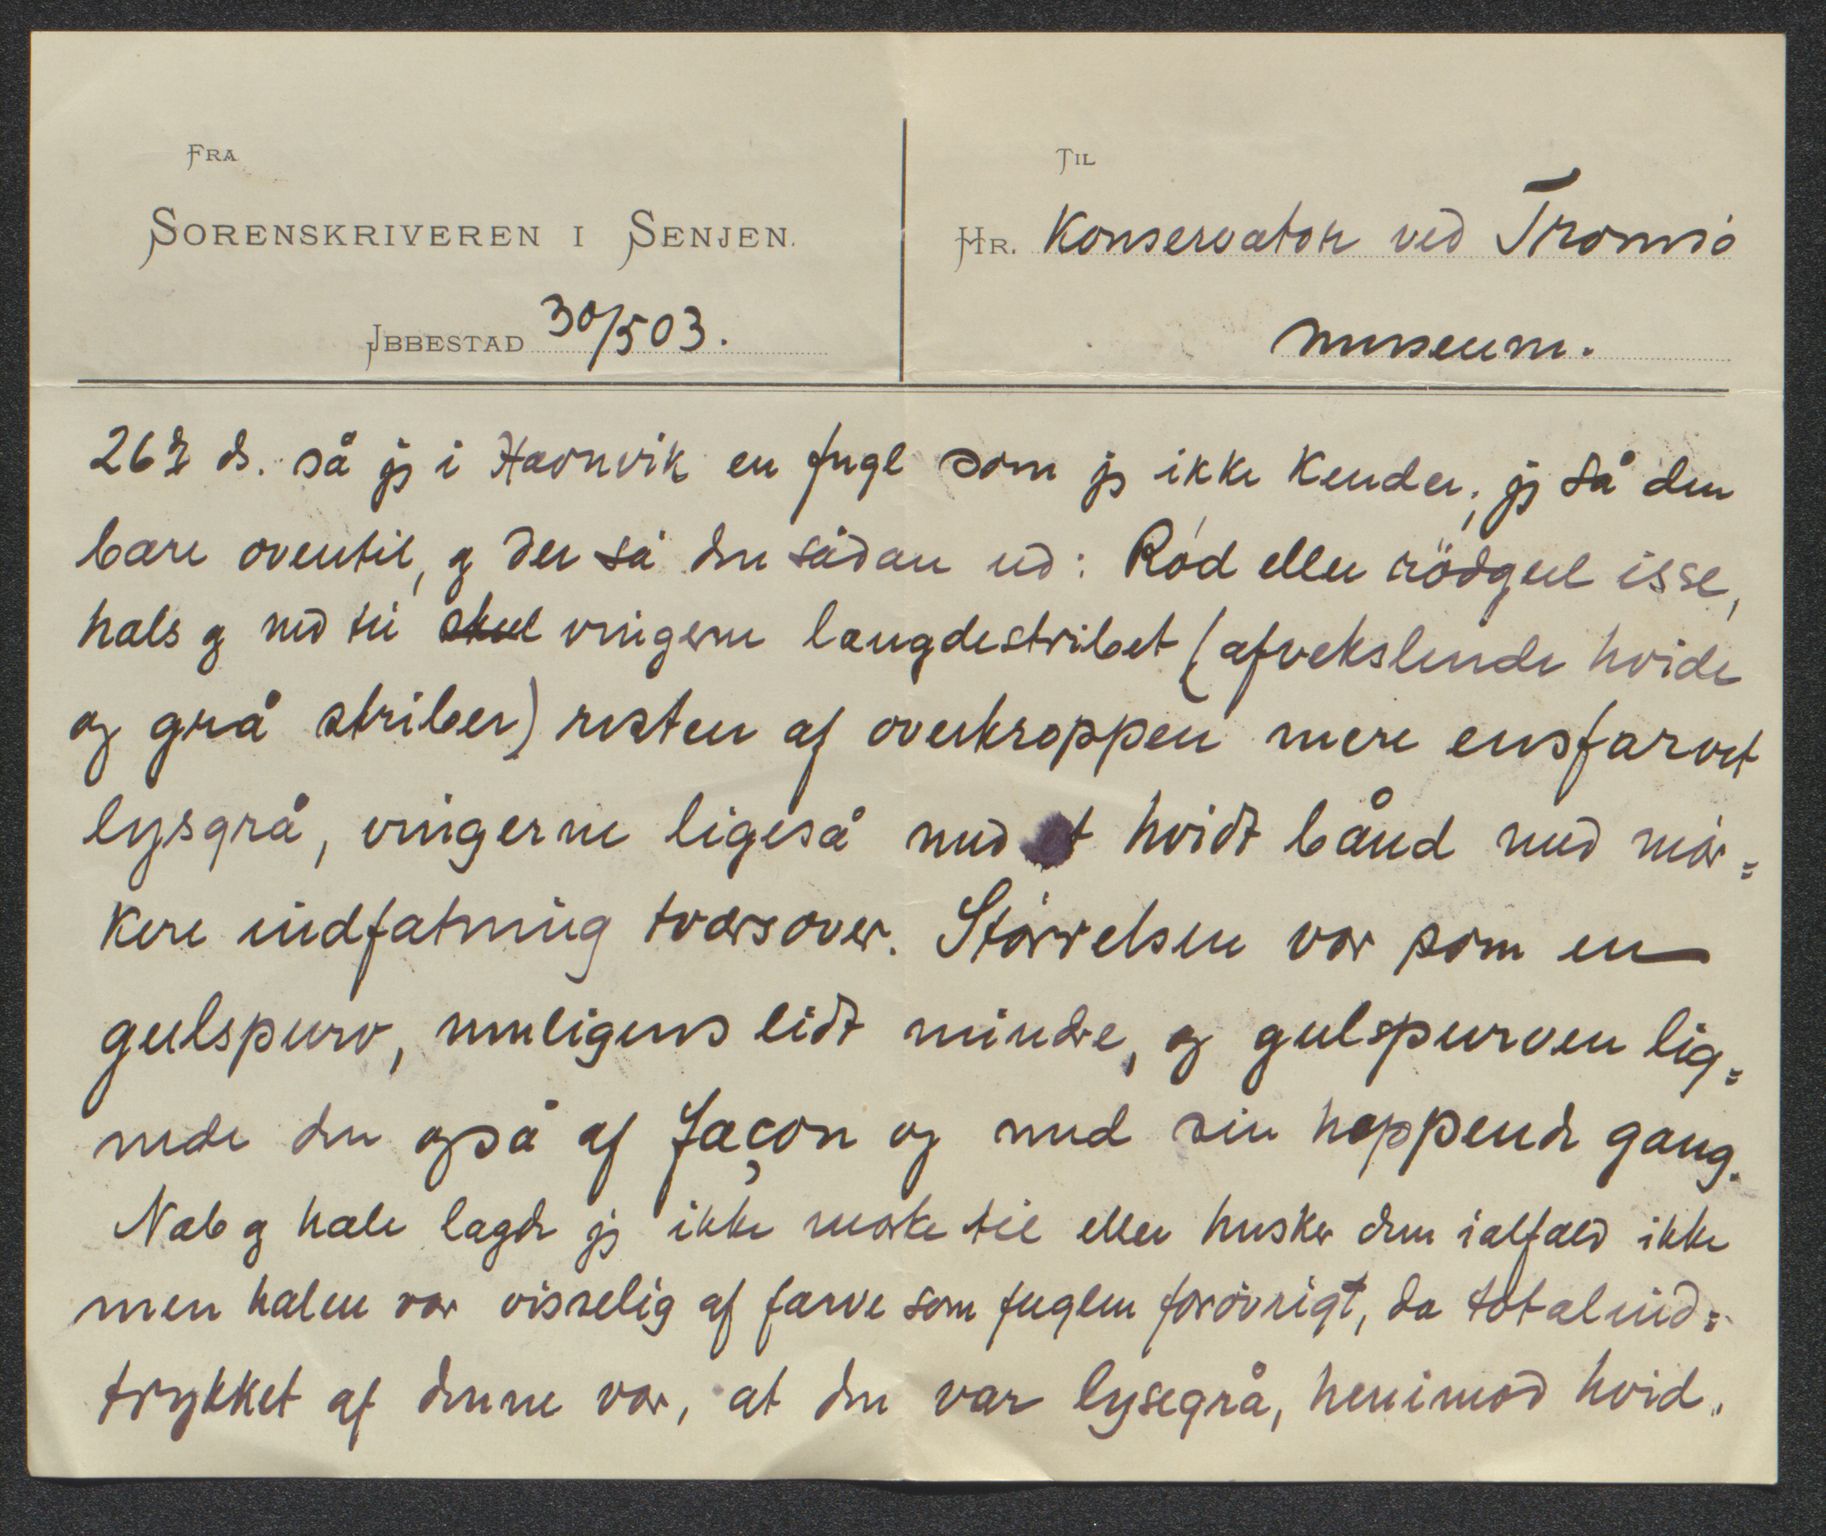 FRA
SORENSKRIVEREN I SENJEN.
JBBESTAD 30/5 03.
TIL
HR. Konservator ved Tromsö
museum.
26 ds. så jg i Havnvik en fugl som jg ikke kender; jg så den
bare oventil, og der så den sådan ud: Rød eller rödgul isse,
hals og ned til skul vingerne længdestribet (afvekslende hvide
og grå striber) resten af overkroppen mere ensfarvet
lysgrå, vingerne ligeså med et hvidt bånd med mör=
kere indfatning tværsover. Störrelsen var som en
gulspurv, muligens lidt mindre, og gulspurven lig=
nede den også af façon og med sin hoppende gang.
Næb og hale lagde jg ikke mærke til eller husker dem ialfald ikke
men halen var visselig af farve som fuglen forövrigt, da totalind=
trykket af denne var, at den var lysegrå, henimod hvid.